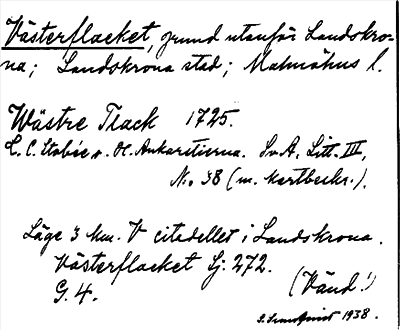 Västerflacket, grund utanför Landskro-
na; Landskrona stad; Malmöhus l.
Wästre Flack 1725.
L. C. Stobée o. H. Ankarstierna. Sv. A. Litt. III,
No 38 (m. kartbeskr.).
Läge 3 km. V citadellet i Landskrona.
Västerflacket Sj. 272.
G. 4.
(Vänd!)
1938.